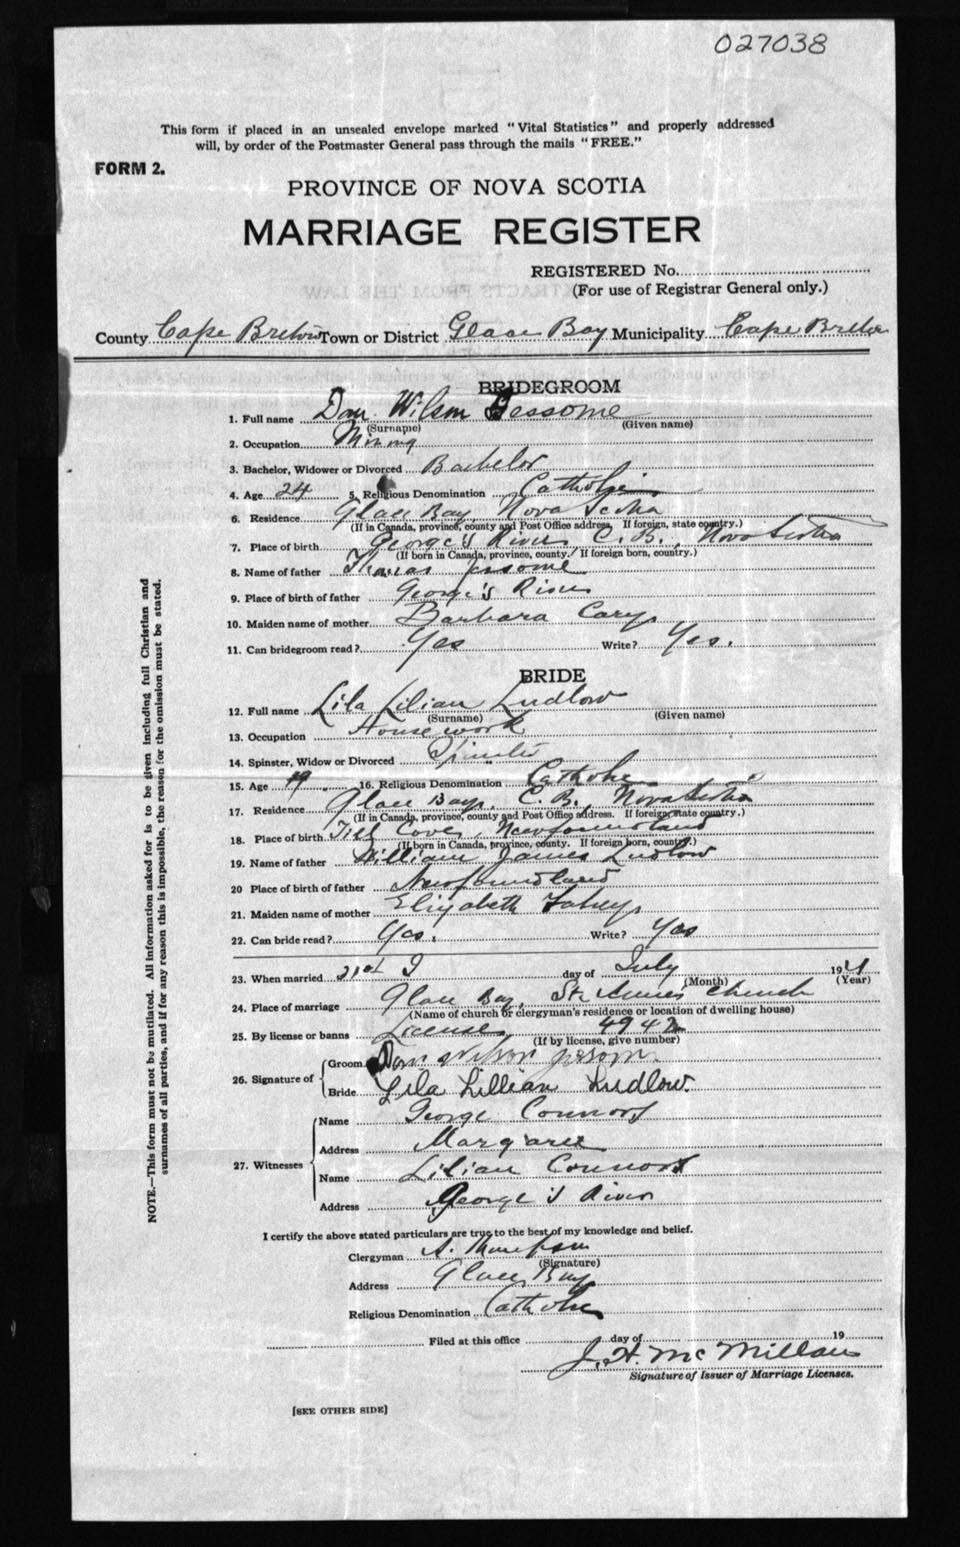 027038
This form if placed in an unsealed envelope marked "Vital Statistics" and properly addressed
will, by order of the Postmaster General pass through the mails "FREE."
FORM 2.
PROVINCE OF NOVA SCOTIA
MARRIAGE REGISTER
REGISTERED No.
(For use of Registrar General only.)
County Cape Breton Town or District Glace Bay Municipality Cape Breton
BRIDEGROOM
1. Full name Dan Wilson Jessome
(Surname) (Given name)
2. Occupation Mining
3. Bachelor, Widower or Divorced Bachelor
4. Age 24 5. Religious Denomination Catholic
6. Residence Glace Bay, Nova Scotia
(If in Canada, province, county and Post Office address. If foreign, state country.)
7. Place of birth George's River C. B., Nova Scotia
(If born in Canada, province, county. If foreign born, country.)
8. Name of father Thomas Jessome
9. Place of birth of father George's River
10. Maiden name of mother Barbara Cary
11. Can bridegroom read? Yes Write? Yes.
BRIDE
12. Full name Lila Lilian Ludlow
(Surname) (Given name)
13. Occupation Housework
14. Spinster, Widow or Divorced Spinster
15. Age 19 16. Religious Denomination Catholic
17. Residence Glace Bay, C. B., Nova Scotia
(If in Canada, province, county and Post Office address. If foreign, state country.)
18. Place of birth Tilt Cove, Newfoundland
(If born in Canada, province, county. If foreign born, country.)
19. Name of father William James Ludlow
20 Place of birth of father Newfoundland
21. Maiden name of mother Elizabeth Fahey
22. Can bride read? Yes. Write? Yes
23. When married 21st day of July 19
(Month) (Year)
24. Place of marriage Glace Bay, St. Annes Church
(Name of church or clergyman's residence or location of dwelling house)
25. By license or banns License 4942
(If by license, give number)
26. Signature of
Groom Dan Wilson Jessome
Bride Lila Lillian Ludlow.
27. Witnesses
Name George Connors
Address Margaree
Name Lilian Connors
Address George's River
I certify the above stated particulars are true to the best of my knowledge and belief.
Clergyman A. Thompson
(Signature)
Address Glace Bay
Religious Denomination Catholic
Filed at this office day of 19
J. H. McMillan
Signature of Issuer of Marriage Licenses.
[SEE OTHER SIDE]
NOTE.—This form must not be mutilated. All information asked for is to be given including full Christian and
surnames of all parties, and if for any reason this is impossible, the reason for the omission must be stated.